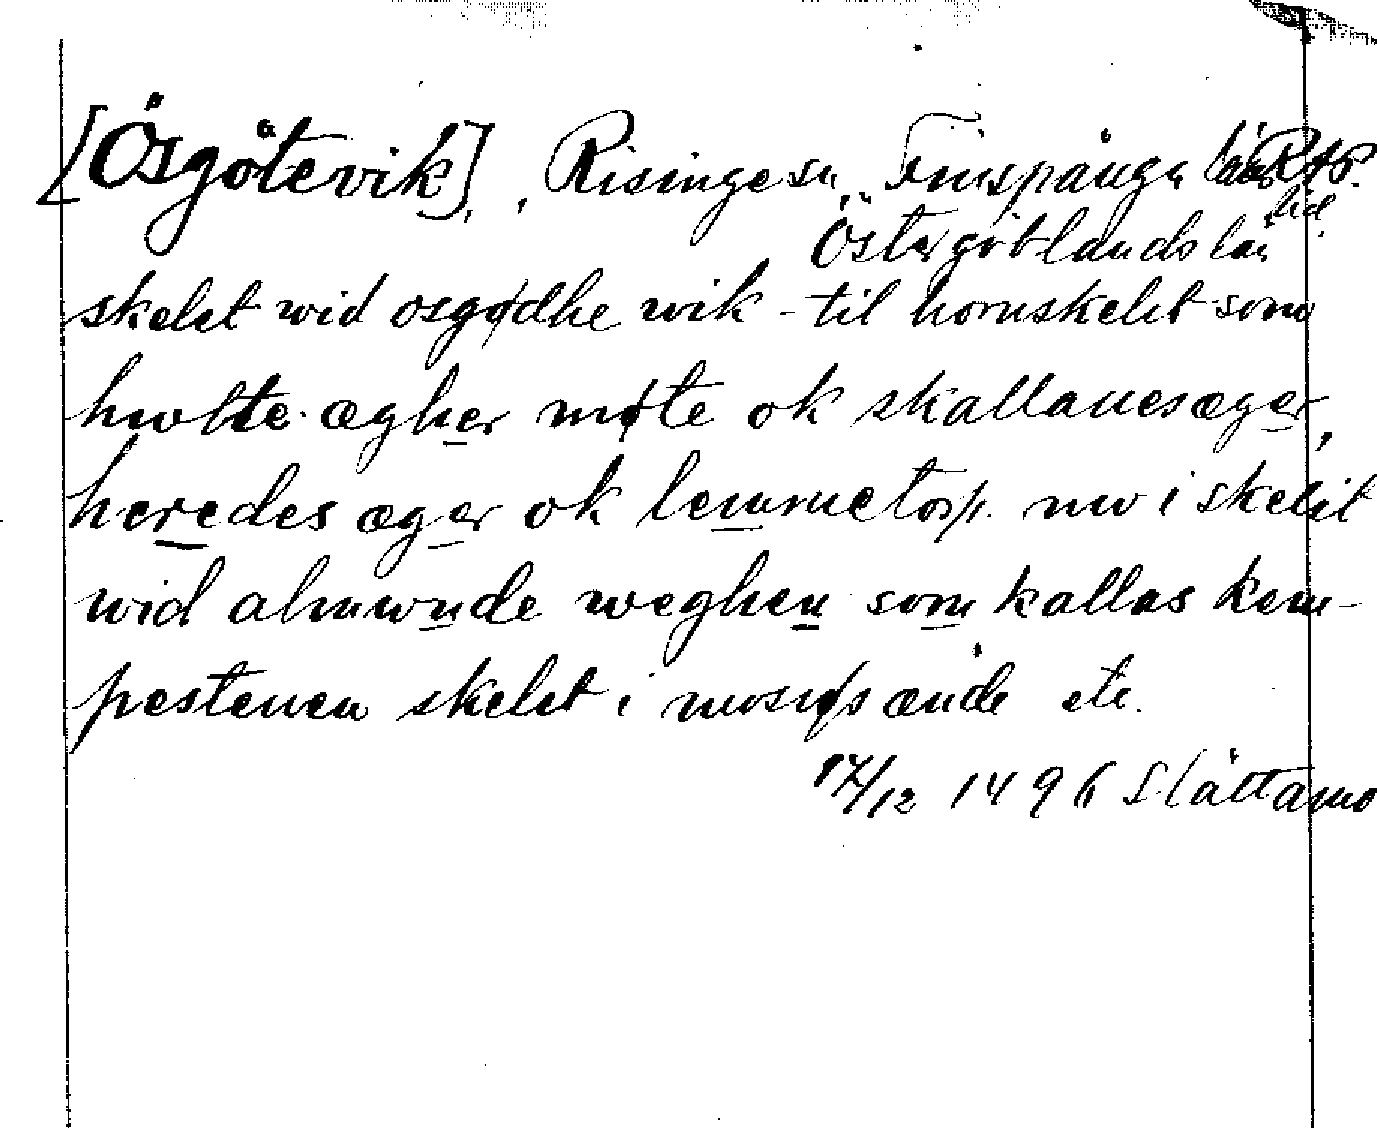 [Ösgötevik], Risinge sn, Finspånga läns hd.
Östergötlands län
skelet wid osgødhe wik - til hornskelit som
hwlte ægher møte ok skallanes æger,
heredes æger ok lemmetorp. nw i skelit
wid almwnde weghen som kallas kem-
pestenen skelet i mosiøs ænde etc.
17/12 1496 Slättamo